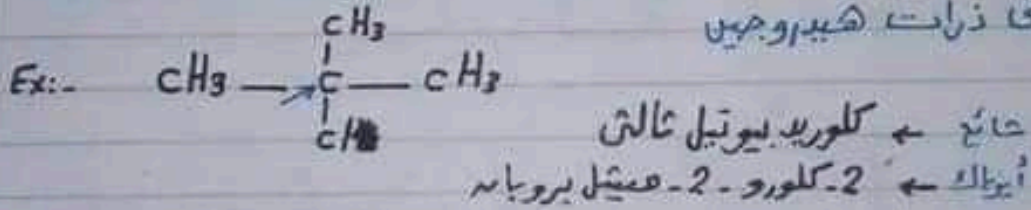 ذرات هيدروجين
CH3
Ex:- CH3 — C — CH3
شائع ← كلوريد بيوتيل ثالثى
أيوباك ← 2-كلورو-2-ميثيل بروبان